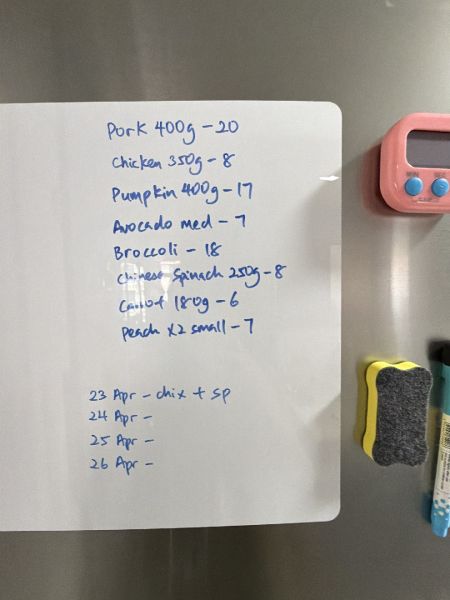 Pork 400g - 20
Chicken 350g - 8
Pumpkin 400g - 17
Avocado med - 7
Broccoli - 18
Chinese Spinach 250g - 8
Carrot 180g - 6
Peach x2 small - 7
23 Apr - chix + sp
24 Apr -
25 Apr -
26 Apr -